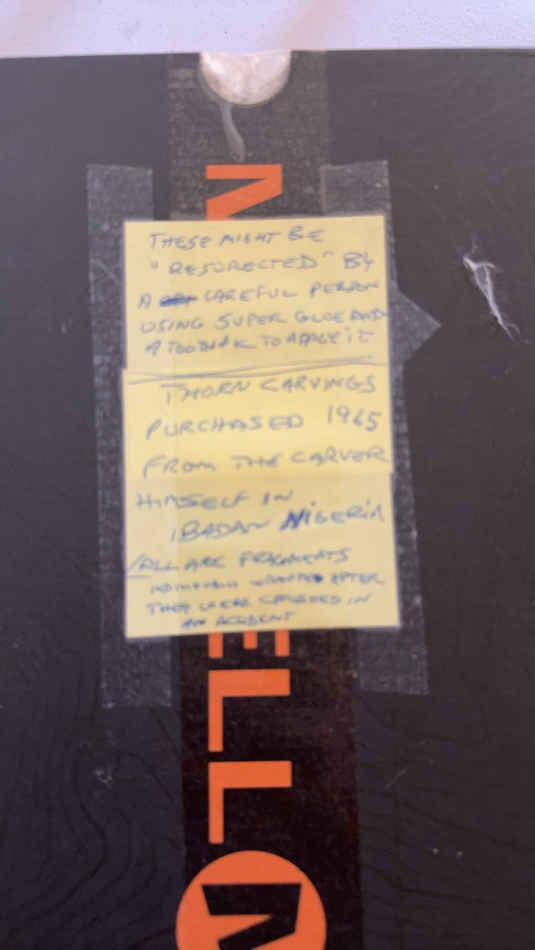 THESE MIGHT BE
"RESURECTED" BY
A CAREFUL PERSON
USING SUPER GLUE AND
A TOOTHPICK TO APPLY IT
THORN CARVINGS
PURCHASED 1965
FROM THE CARVER
HIMSELF IN
IBADAN NIGERIA
ALL ARE FRAGMENTS
INDIVIDUALLY WRAPPED AFTER
THEY WERE CRUSHED IN
AN ACCIDENT
ELL